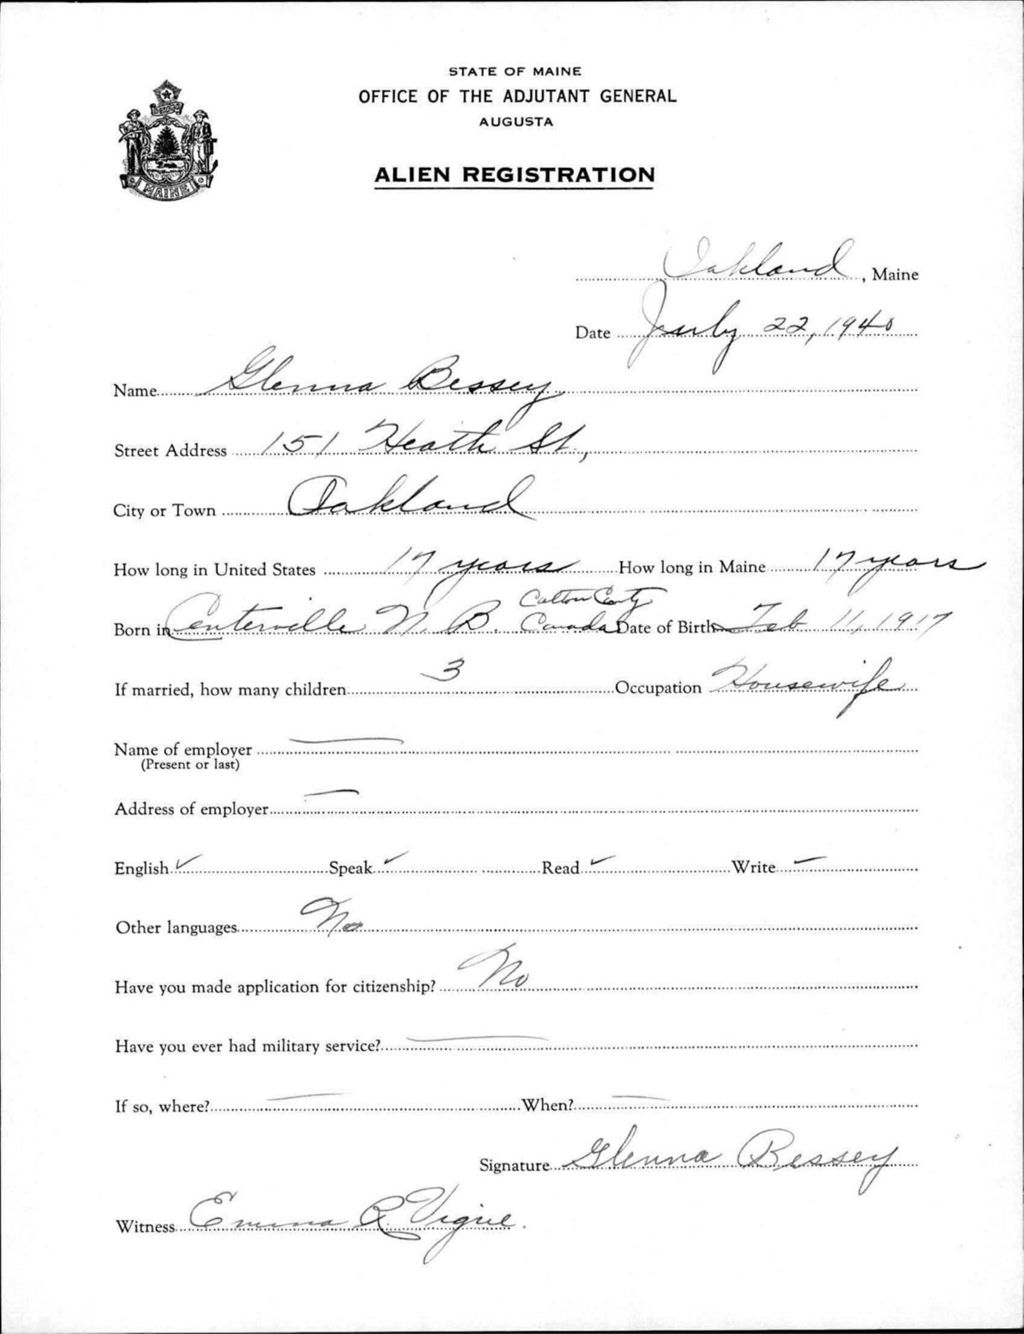 STATE OF MAINE
OFFICE OF THE ADJUTANT GENERAL
AUGUSTA
ALIEN REGISTRATION
MAINE
Oakland, Maine
Date July 22, 1940
Name Glenna Bessey
Street Address 151 Heath St,
City or Town Oakland
How long in United States 17 years How long in Maine 17 years
Born in Centerville N. B. Canada Date of Birth Feb 11, 1917
If married, how many children 3 Occupation Housewife
Name of employer —
(Present or last)
Address of employer —
English ✓ Speak ✓ Read ✓ Write ✓
Other languages No
Have you made application for citizenship? No
Have you ever had military service? —
If so, where? — When? —
Signature Glenna Bessey
Witness Emma R Vigue.